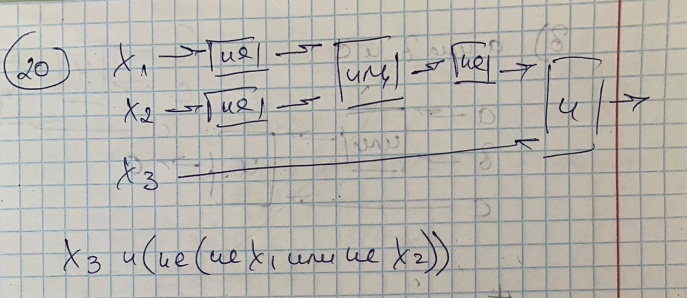 20
X₁ → не → или → не → и →
X₂ → не →
X₃
X₃ и (не (не X₁ или не X₂))